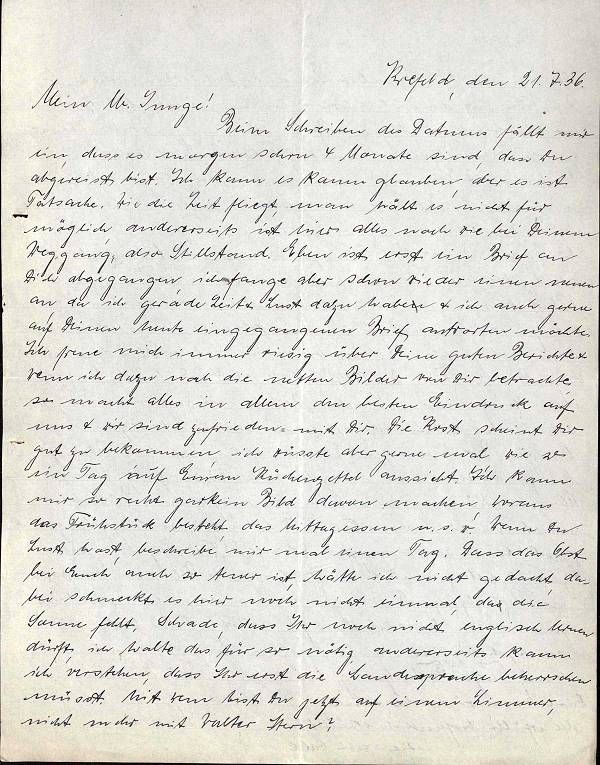 Krefeld, den 21.7.36.
Mein l. Junge!
Beim Schreiben des Datums fällt mir
ein, dass es morgen schon 4 Monate sind, dass Du
abgereist bist. Ich kann es kaum glauben, aber es ist
Tatsache. Wie die Zeit fliegt, man hält es nicht für
möglich, andererseits ist hier alles noch wie bei Deinem
Weggang, also Stillstand. Eben ist erst ein Brief an
Dich abgegangen, ich fange aber schon wieder einen neuen
an da ich gerade Zeit & Lust dazu habe & ich auch gerne
auf Deinen heute eingegangenen Brief antworten möchte.
Ich freue mich immer riesig über Deine guten Berichte &
wenn ich dazu noch die netten Bilder von Dir betrachte,
so macht alles in allem den besten Eindruck auf
uns & wir sind zufrieden mit Dir. Die Kost scheint Dir
gut zu bekommen, ich wüsste aber gerne mal wie so
ein Tag auf Eurem Küchenzettel aussieht. Ich kann
mir so recht garkein Bild davon machen, woraus
das Frühstück besteht das Mittagessen u.s.w. Wenn Du
Lust hast, beschreibe mir mal einen Tag. Dass das Obst
bei Euch auch so teuer ist hätte ich nicht gedacht, da-
bei schmeckt es hier noch nicht einmal, da die
Sonne fehlt. Schade, dass Ihr noch nicht englisch lernen
dürft, ich halte das für so nötig andererseits kann
ich verstehen, dass Ihr erst die Landessprache beherrschen
müsst. Mit wem bist Du jetzt auf einem Zimmer,
nicht mehr mit Walter Stern?